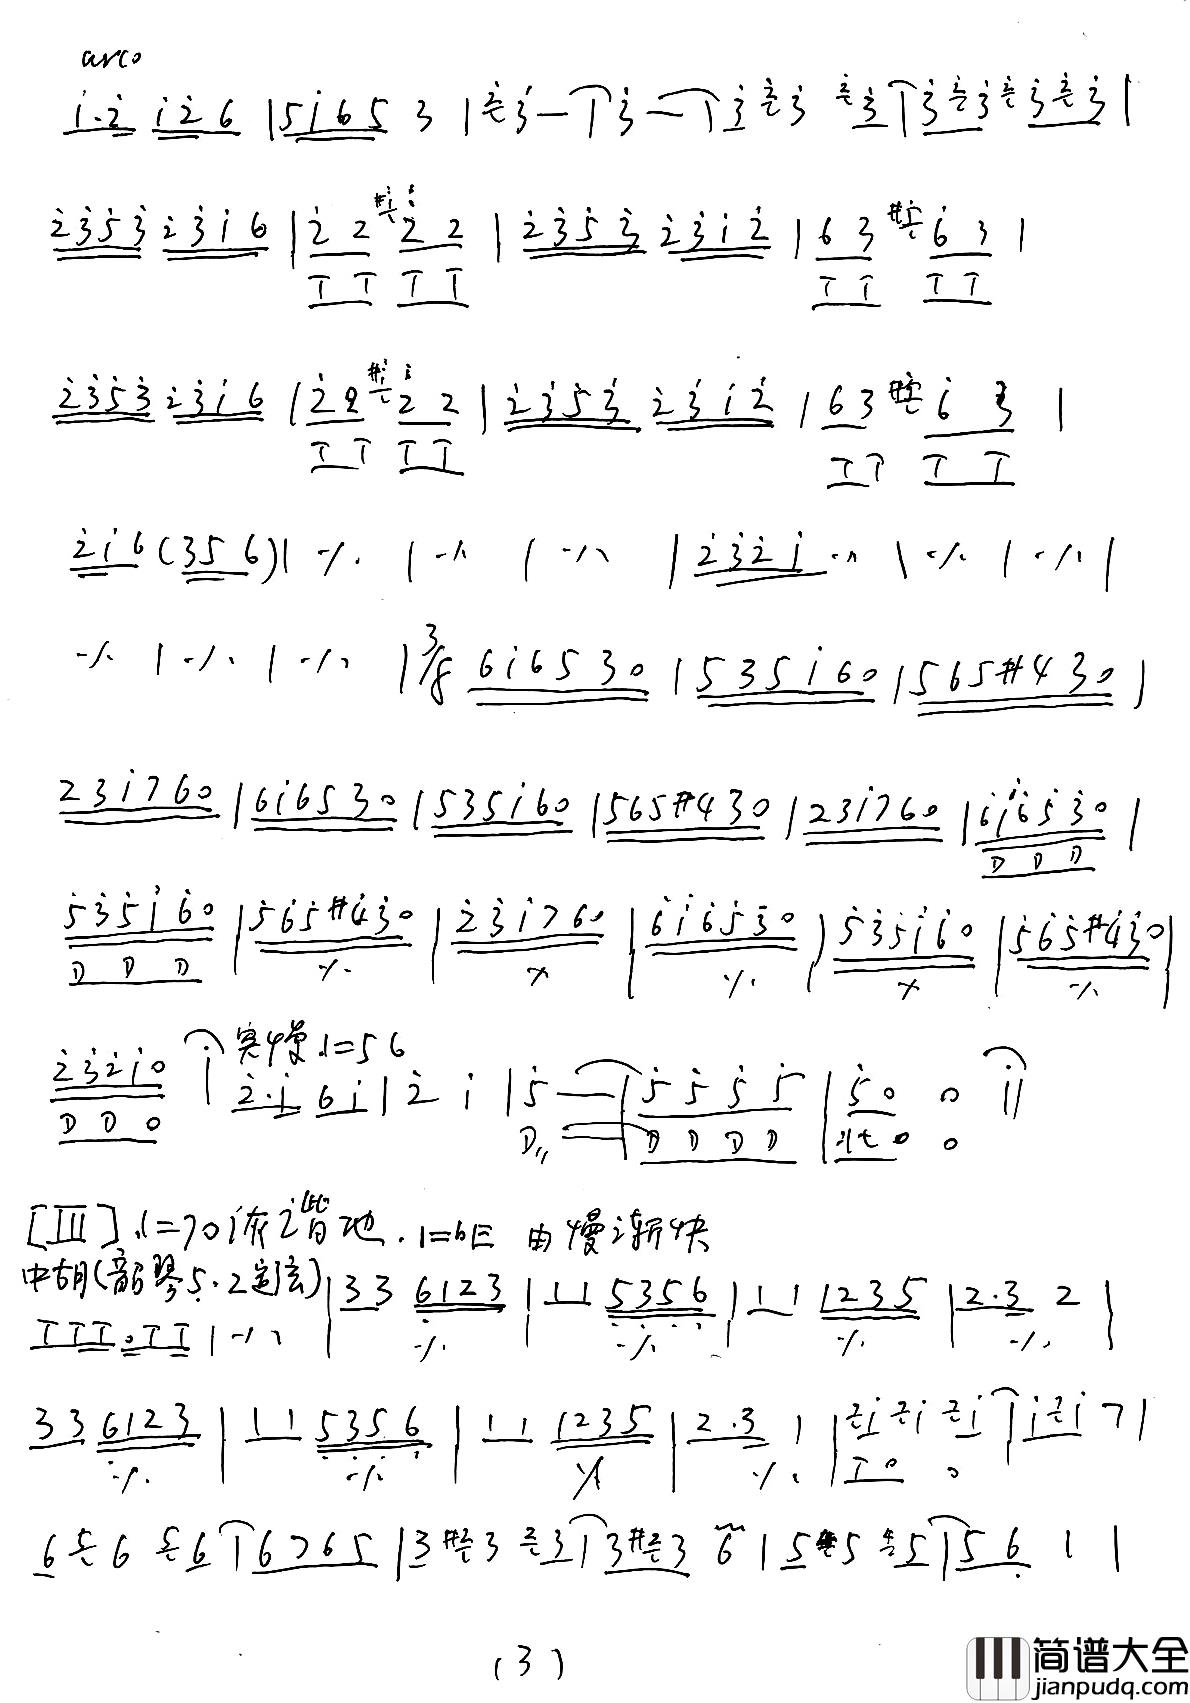 arco
i·2 i26 | 5i65 3 | 3 — | 3 — | 3 3 3 | 3 3 3 3 |
2353 2316 | 2 2 2 2 | 2353 2312 | 6 3 6 3 |
T T T T T T T T
2353 2316 | 2 2 2 2 | 2353 2312 | 6 3 i 3 |
T T T T T T T T
2i6 (356) | ٪ | ٪ | ٪ | 232i ٪ | ٪ | ٪ |
٪ | ٪ | ٪ | 3/8 6i6530 | 535i60 | 565#430 |
23i760 | 6i6530 | 535i60 | 565#430 | 23i760 | 6i6530 |
D D D
535i60 | 565#430 | 23i760 | 6i6530 | 535i60 | 565#430 |
D D D ٪ ٪ ٪ ٪ ٪
232i0 | 突慢 ♩=56
2·i 6i | 2 i | 5 — | 5 5 5 5 | 5 0 0 ||
D D 0 D D D D D 0 0
[III] ♩=70 诙谐地. 1=bE 由慢渐快
中胡(高琴5.2定弦) | 33 6123 | 11 5356 | 11 1235 | 2·3 2 |
TTT·TT | ٪ ٪ ٪ ٪ ٪
33 6123 | 11 5356 | 11 1235 | 2·3 1 | 2i 2i 2i | i 2i 7 |
٪ ٪ ٪ ٪ T 0 0
6 5 6 5 6 | 6765 | 3 #2 3 2 3 | 3 #2 3 6 | 5 #4 5 4 5 | 5 6 1 |
(3)
简谱大全
jianpudq.com